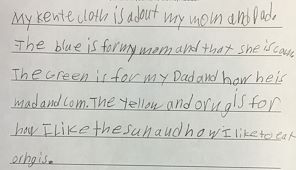 My kente cloth is adout my mom and Dad.
The blue is for my mom and that she is
The Green is for my Dad and how he is
mad and com. The Yellow and orngis for
how I like the sun and how I like to eat
orngis.